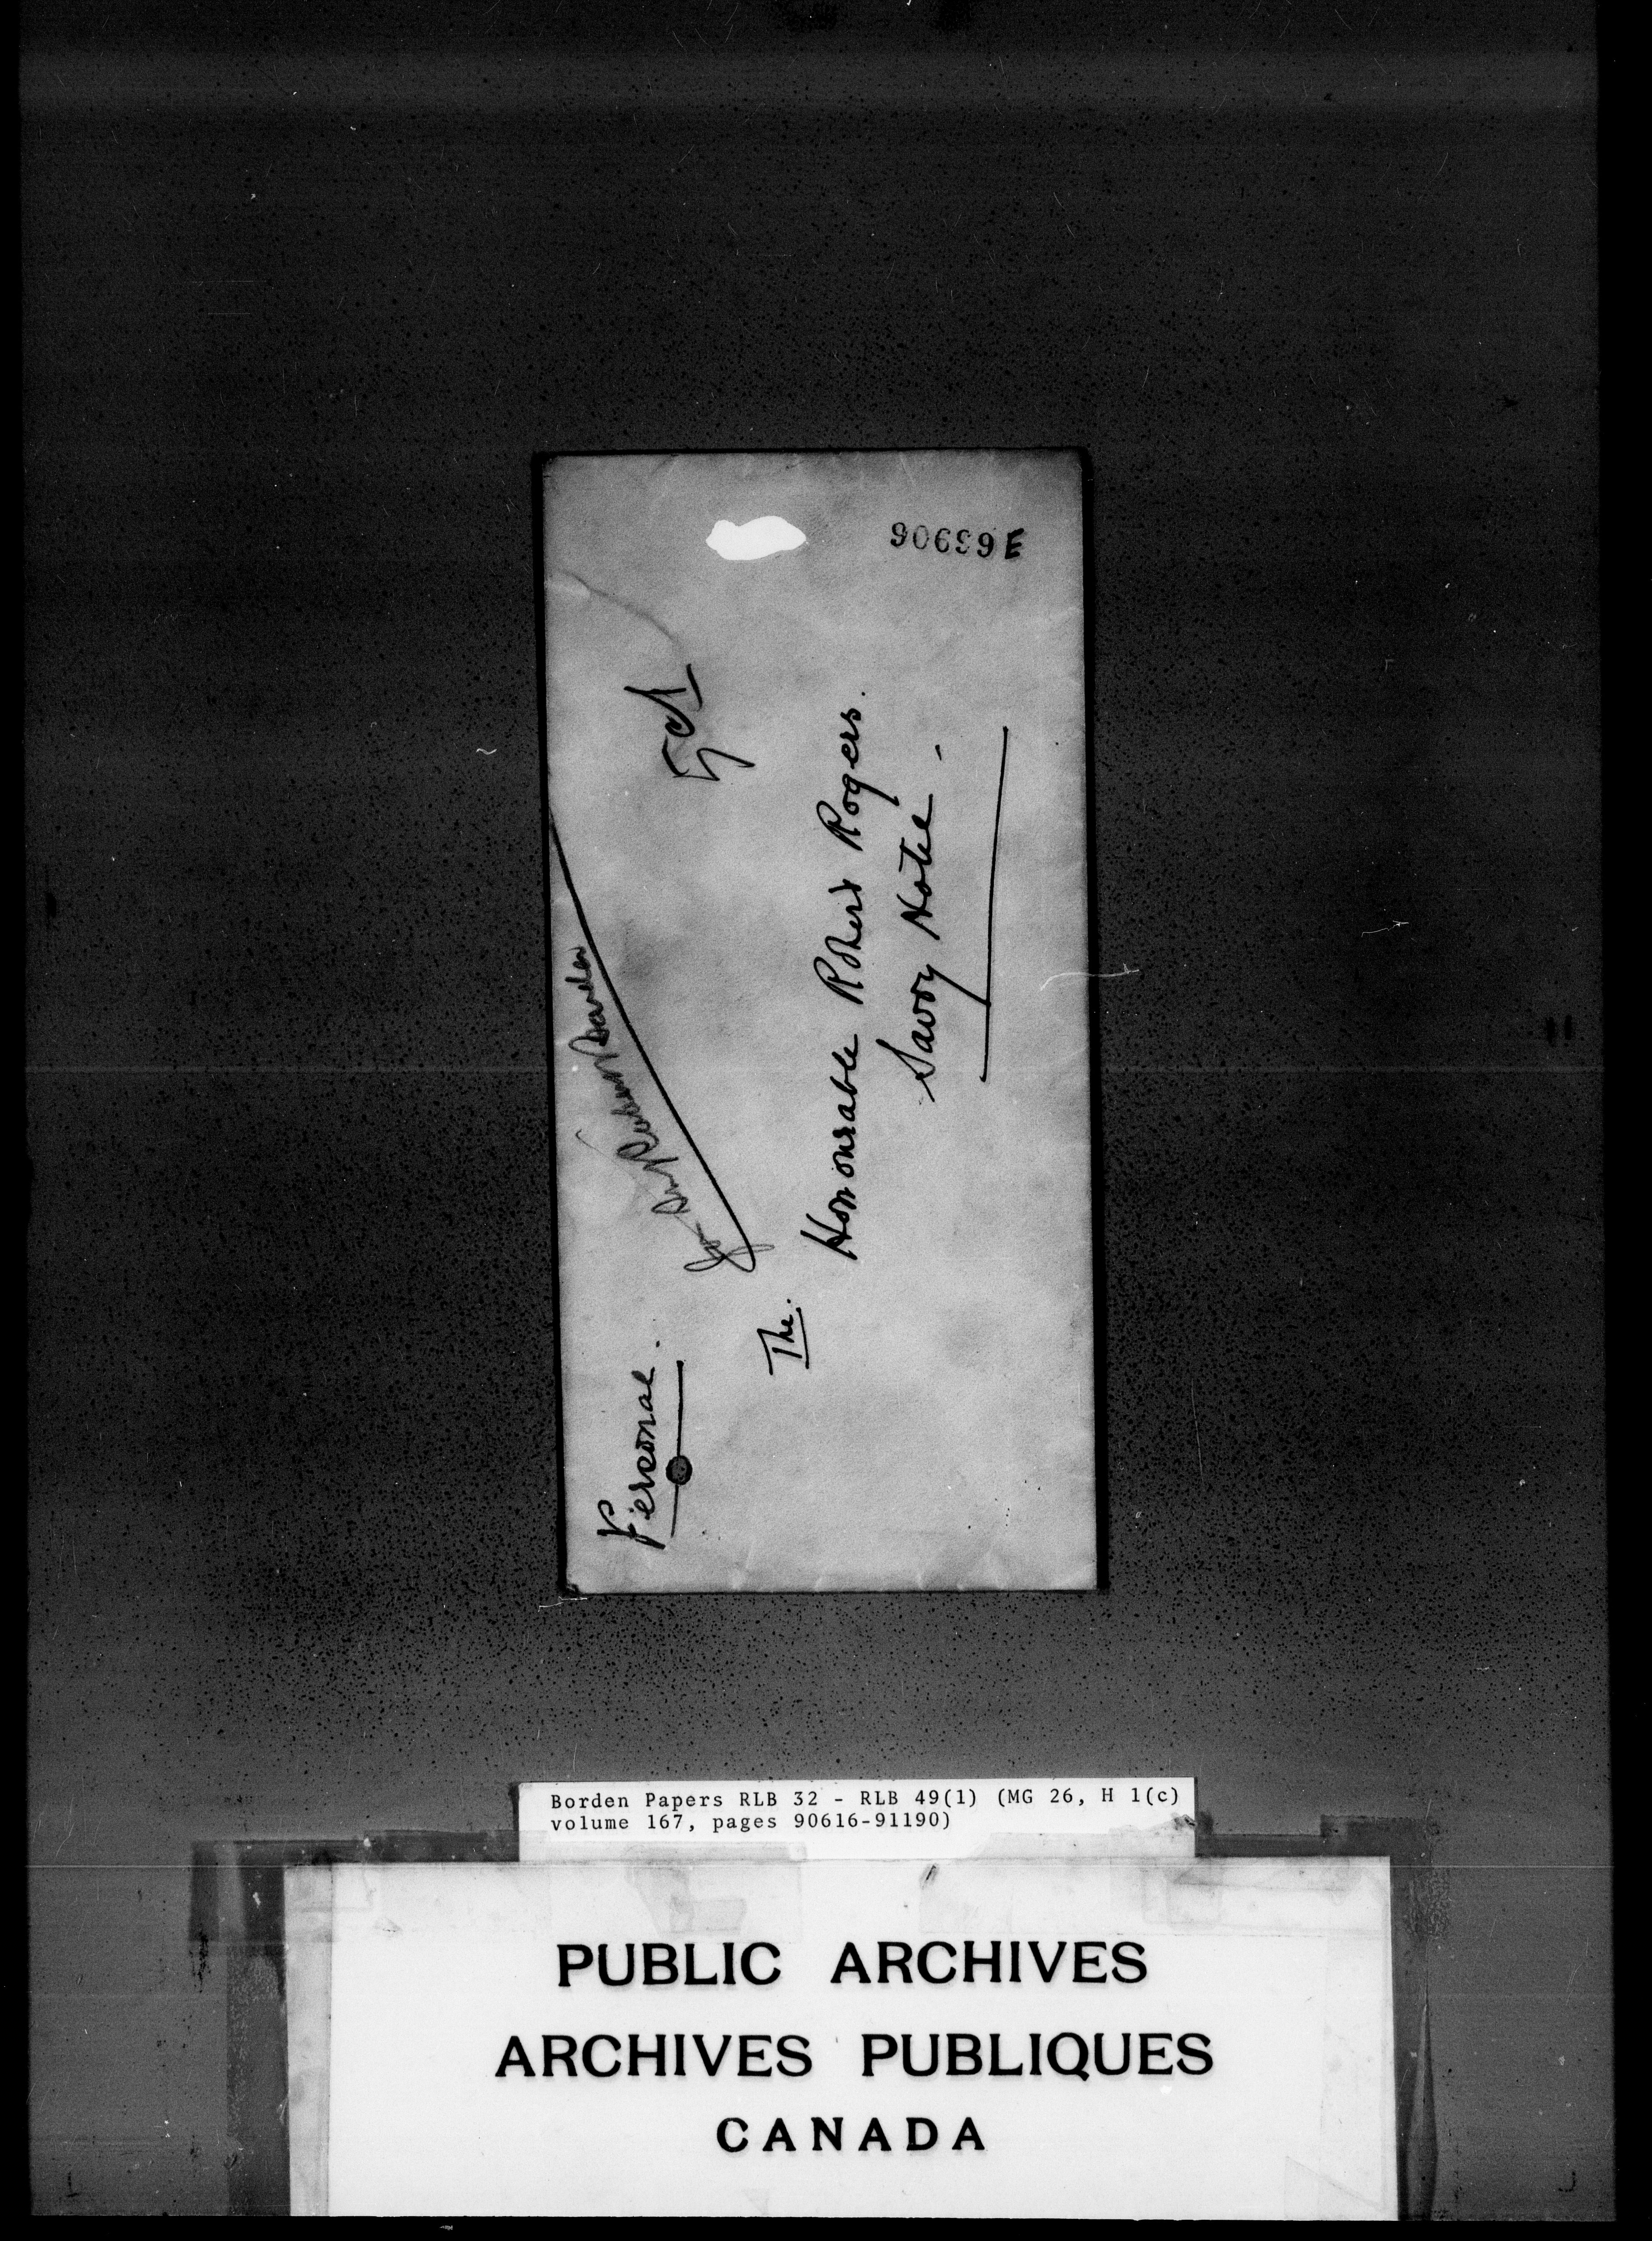 90699E
Personal.
for Sir Robert Borden
The.
Honourable Robert Rogers.
Savoy Hotel -
Borden Papers RLB 32 - RLB 49(1) (MG 26, H 1(c)
volume 167, pages 90616-91190)
PUBLIC ARCHIVES
ARCHIVES PUBLIQUES
CANADA